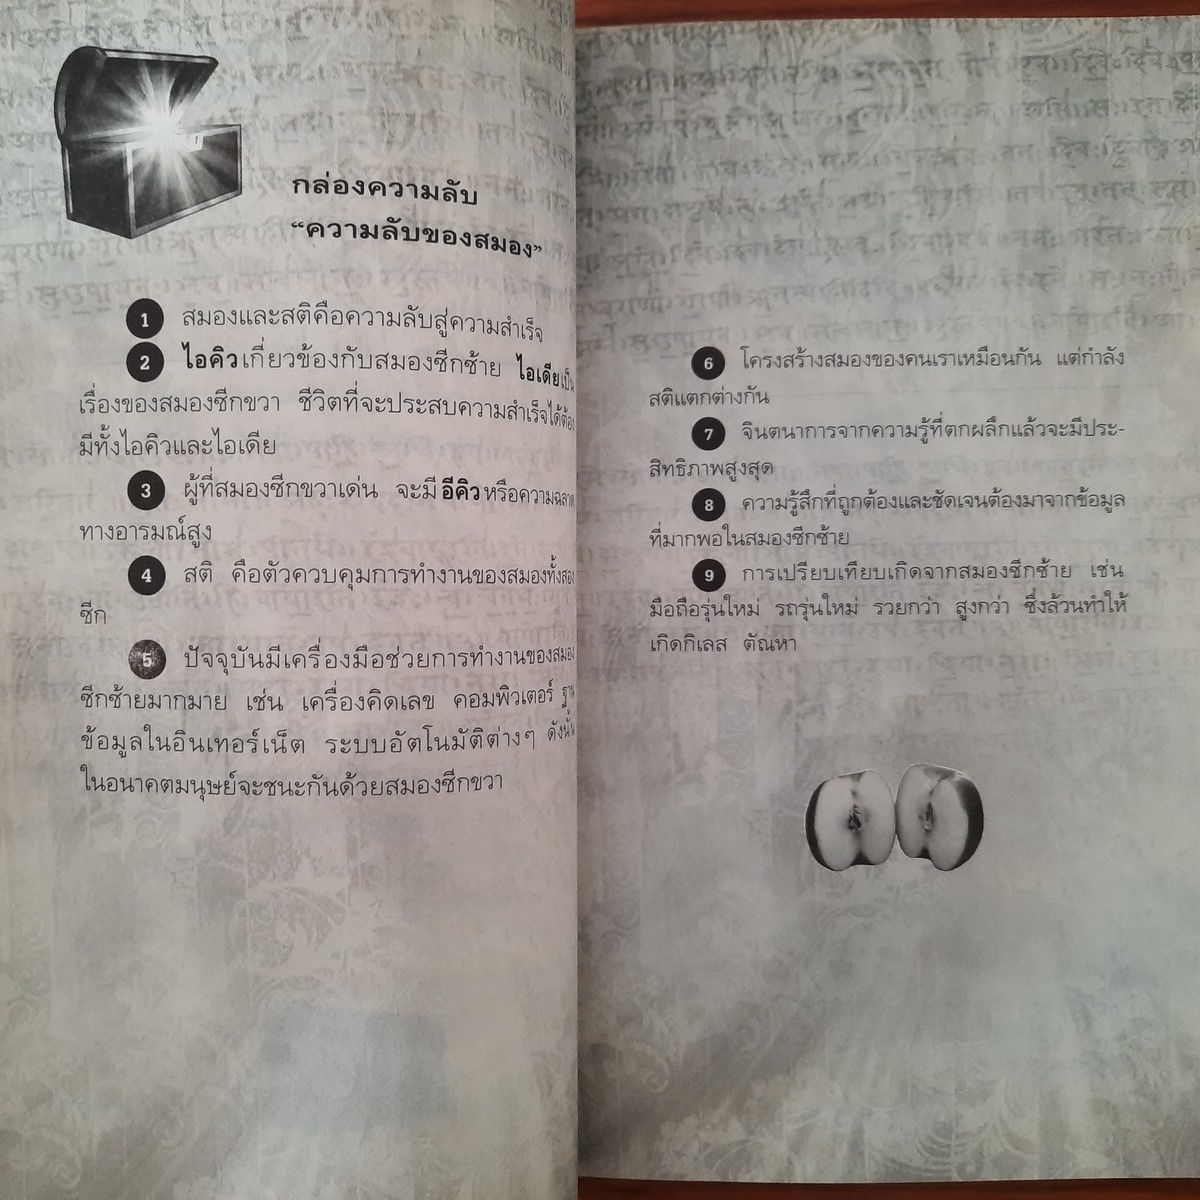 กล่องความลับ
“ความลับของสมอง”
1 สมองและสติคือความลับสู่ความสำเร็จ
2 ไอคิวเกี่ยวข้องกับสมองซีกซ้าย ไอเดียเป็น
เรื่องของสมองซีกขวา ชีวิตที่จะประสบความสำเร็จได้ต้อง
มีทั้งไอคิวและไอเดีย
3 ผู้ที่สมองซีกขวาเด่น จะมีอีคิวหรือความฉลาด
ทางอารมณ์สูง
4 สติ คือตัวควบคุมการทำงานของสมองทั้งสอง
ซีก
5 ปัจจุบันมีเครื่องมือช่วยการทำงานของสมอง
ซีกซ้ายมากมาย เช่น เครื่องคิดเลข คอมพิวเตอร์ ฐาน
ข้อมูลในอินเทอร์เน็ต ระบบอัตโนมัติต่างๆ ดังนั้น
ในอนาคตมนุษย์จะชนะกันด้วยสมองซีกขวา
6 โครงสร้างสมองของคนเราเหมือนกัน แต่กำลัง
สติแตกต่างกัน
7 จินตนาการจากความรู้ที่ตกผลึกแล้วจะมีประ-
สิทธิภาพสูงสุด
8 ความรู้สึกที่ถูกต้องและชัดเจนต้องมาจากข้อมูล
ที่มากพอในสมองซีกซ้าย
9 การเปรียบเทียบเกิดจากสมองซีกซ้าย เช่น
มือถือรุ่นใหม่ รถรุ่นใหม่ รวยกว่า สูงกว่า ซึ่งล้วนทำให้
เกิดกิเลส ตัณหา